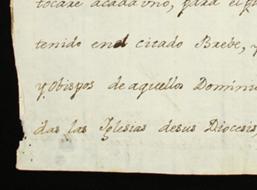 tocare acada uno, para el q
tenido en el citado Brebe, y
y Obispos de aquellos Domini
das las Iglesias de sus Diocesis,